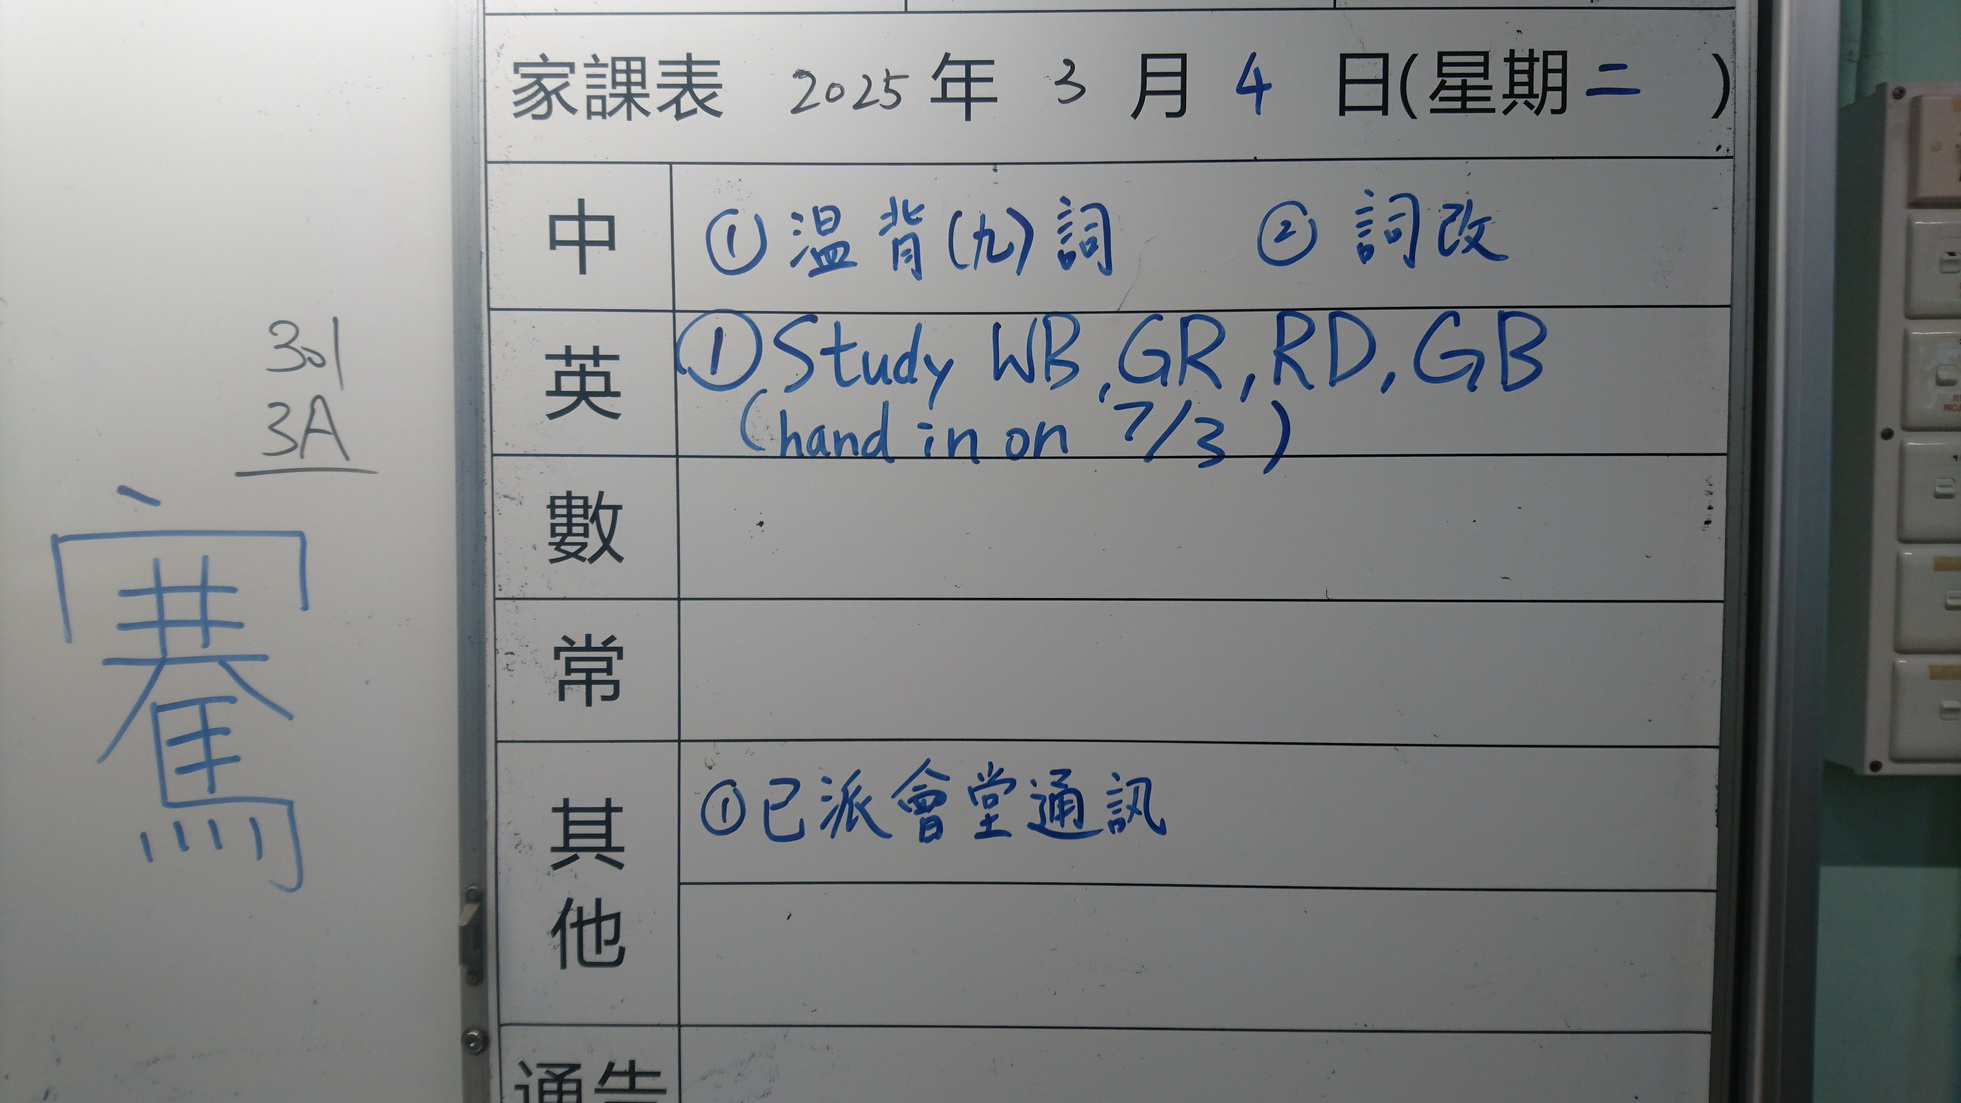 家課表 2025 年 3 月 4 日(星期二 )
中 ①温背(九)詞 ②詞改
英 ①Study WB, GR, RD, GB
(hand in on 7/3)
數
常
其他 ①已派會堂通訊
通告
301
3A
騫